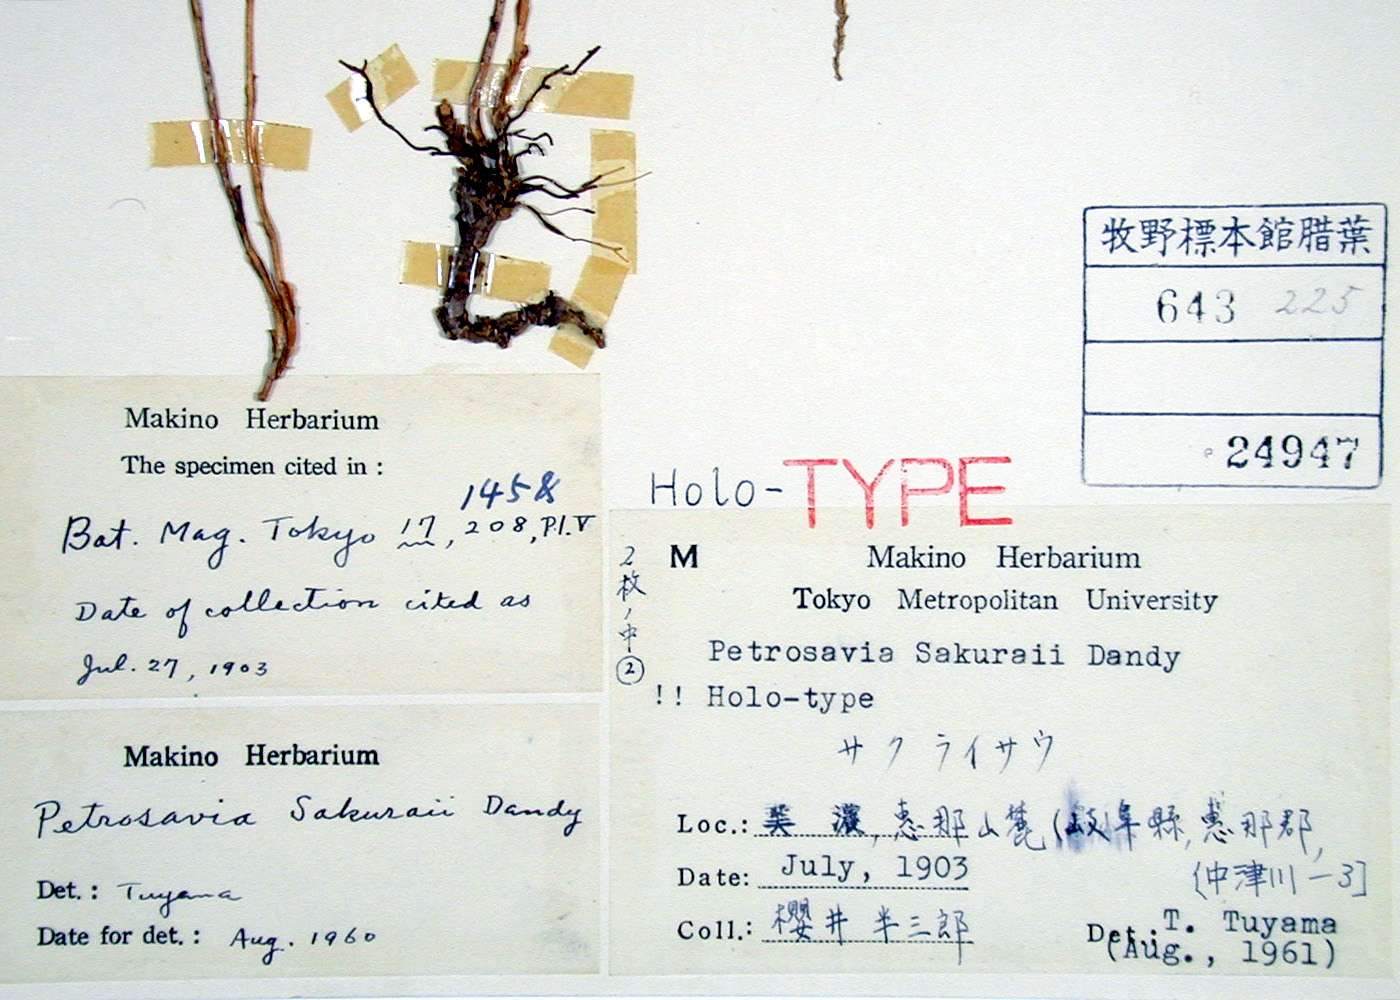 牧野標本館腊葉
643 225
24947
Makino Herbarium
The specimen cited in :
1458
Bat. Mag. Tokyo 17, 208, Pl. V
Date of collection cited as
Jul. 27, 1903
Makino Herbarium
Petrosavia Sakuraii Dandy
Det. : Tuyama
Date for det. : Aug. 1960
Holo-TYPE
2枚ノ中②
M Makino Herbarium
Tokyo Metropolitan University
Petrosavia Sakuraii Dandy
!! Holo-type
サクライサウ
Loc.: 美濃, 恵那山麓 (岐阜縣, 恵那郡,
[中津川-3]
Date: July, 1903
Coll.: 櫻井半三郎
Det. T. Tuyama
(Aug., 1961)